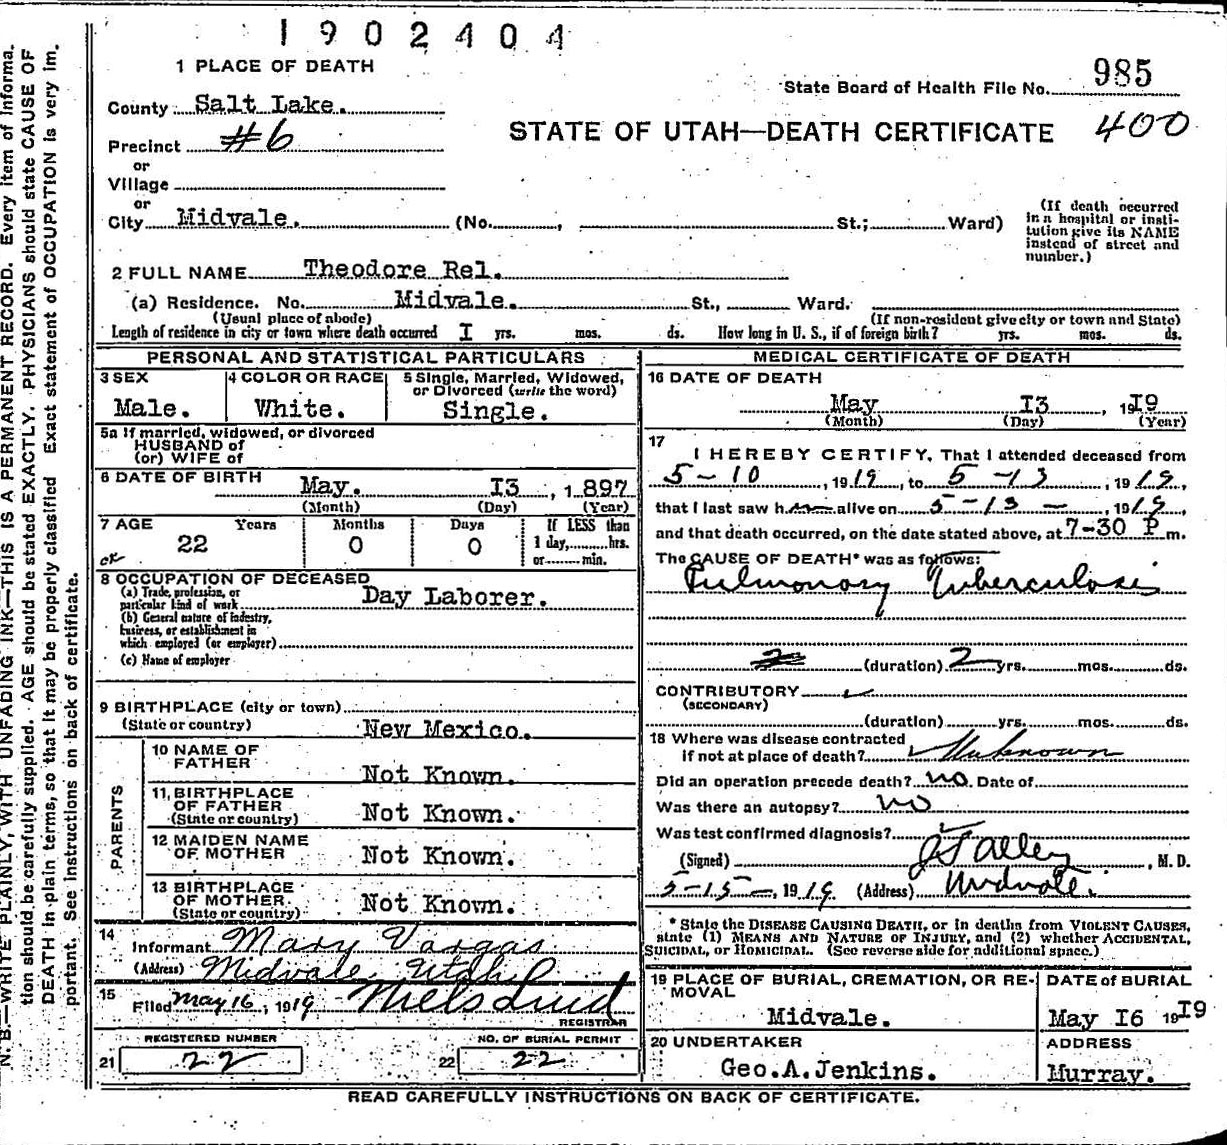 1902404
1 PLACE OF DEATH
State Board of Health File No. 985
County Salt Lake.
STATE OF UTAH—DEATH CERTIFICATE 400
Precinct #6
or
Village
or
City Midvale. (No. , St.; Ward)
(If death occurred in a hospital or insti-
tution give its NAME instead of street and number.)
2 FULL NAME Theodore Rel.
(a) Residence. No. Midvale. St., Ward.
(Usual place of abode) (If non-resident give city or town and State)
Length of residence in city or town where death occurred I yrs. mos. ds. How long in U. S., if of foreign birth? yrs. mos. ds.
PERSONAL AND STATISTICAL PARTICULARS
3 SEX 4 COLOR OR RACE 5 Single, Married, Widowed,
or Divorced (write the word)
Male. White. Single.
5a If married, widowed, or divorced
HUSBAND of
(or) WIFE of
6 DATE OF BIRTH May. I3, 1897
(Month) (Day) (Year)
7 AGE Years Months Days If LESS than
22 0 0 1 day, hrs.
or min.
8 OCCUPATION OF DECEASED
(a) Trade, profession, or
particular kind of work Day Laborer.
(b) General nature of industry,
business, or establishment in
which employed (or employer)
(c) Name of employer
9 BIRTHPLACE (city or town)
(State or country) New Mexico.
PARENTS
10 NAME OF
FATHER Not Known.
11 BIRTHPLACE
OF FATHER
(State or country) Not Known.
12 MAIDEN NAME
OF MOTHER Not Known.
13 BIRTHPLACE
OF MOTHER
(State or country) Not Known.
14
Informant Mary Vargas
(Address) Midvale, Utah
15
Filed May 16, 1919
REGISTRAR
REGISTERED NUMBER NO. OF BURIAL PERMIT
21 22 22 22
MEDICAL CERTIFICATE OF DEATH
16 DATE OF DEATH
May I3, 19I9
(Month) (Day) (Year)
17
I HEREBY CERTIFY, That I attended deceased from
5-10, 1919, to 5-13, 1919,
that I last saw h alive on 5-13-, 1919,
and that death occurred, on the date stated above, at 7-30 P m.
The CAUSE OF DEATH* was as follows:
Pulmonary Tuberculosis
(duration) 2 yrs. mos. ds.
CONTRIBUTORY
(SECONDARY)
(duration) yrs. mos. ds.
18 Where was disease contracted
if not at place of death? Unknown
Did an operation precede death? no. Date of
Was there an autopsy? no
Was test confirmed diagnosis?
(Signed) , M. D.
5-15-, 1919 (Address) Midvale.
* State the DISEASE CAUSING DEATH, or in deaths from VIOLENT CAUSES,
state (1) MEANS AND NATURE OF INJURY, and (2) whether ACCIDENTAL,
SUICIDAL, or HOMICIDAL. (See reverse side for additional space.)
19 PLACE OF BURIAL, CREMATION, OR RE-
MOVAL
Midvale.
DATE of BURIAL
May I6 19I9
20 UNDERTAKER
Geo.A.Jenkins.
ADDRESS
Murray.
READ CAREFULLY INSTRUCTIONS ON BACK OF CERTIFICATE.
N. B.—WRITE PLAINLY, WITH UNFADING INK—THIS IS A PERMANENT RECORD. Every item of informa-
tion should be carefully supplied. AGE should be stated EXACTLY. PHYSICIANS should state CAUSE OF
DEATH in plain terms, so that it may be properly classified. Exact statement of OCCUPATION is very im-
portant. See instructions on back of certificate.